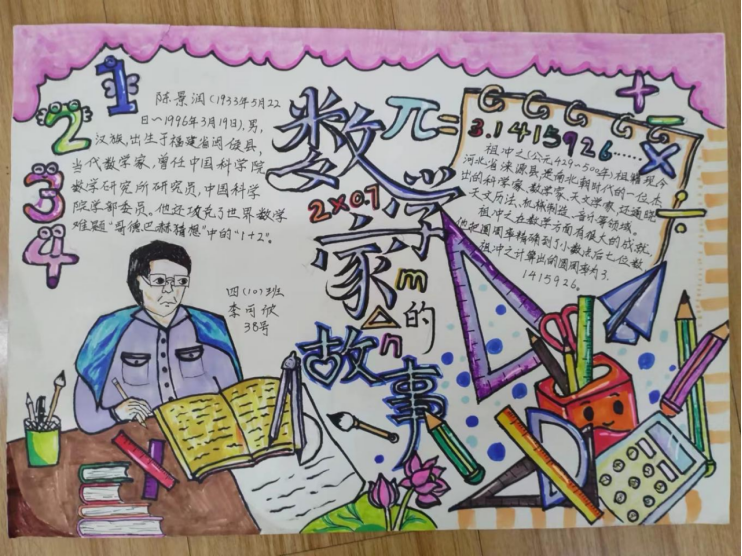 1
2
3
4
陈景润(1933年5月22
日～1996年3月19日),男,
汉族,出生于福建省闽侯县,
当代数学家,曾任中国科学院
数学研究所研究员,中国科学
院学部委员。他还攻克了世界数学
难题"哥德巴赫猜想"中的"1+2"。
四(10)班
李可欣
38号
数学家的故事
2×0.7
m
n
π=
3.1415926……
+
-
×
÷
祖冲之(公元429～500年)祖籍现今
河北省涞源县,是南北朝时代的一位杰
出的科学家、数学家、天文学家,还通晓
天文历法、机械制造、音律等领域。
祖冲之在数学方面有很大的成就,
他把圆周率精确到了小数点后七位数
祖冲之计算出的圆周率为3.
1415926。